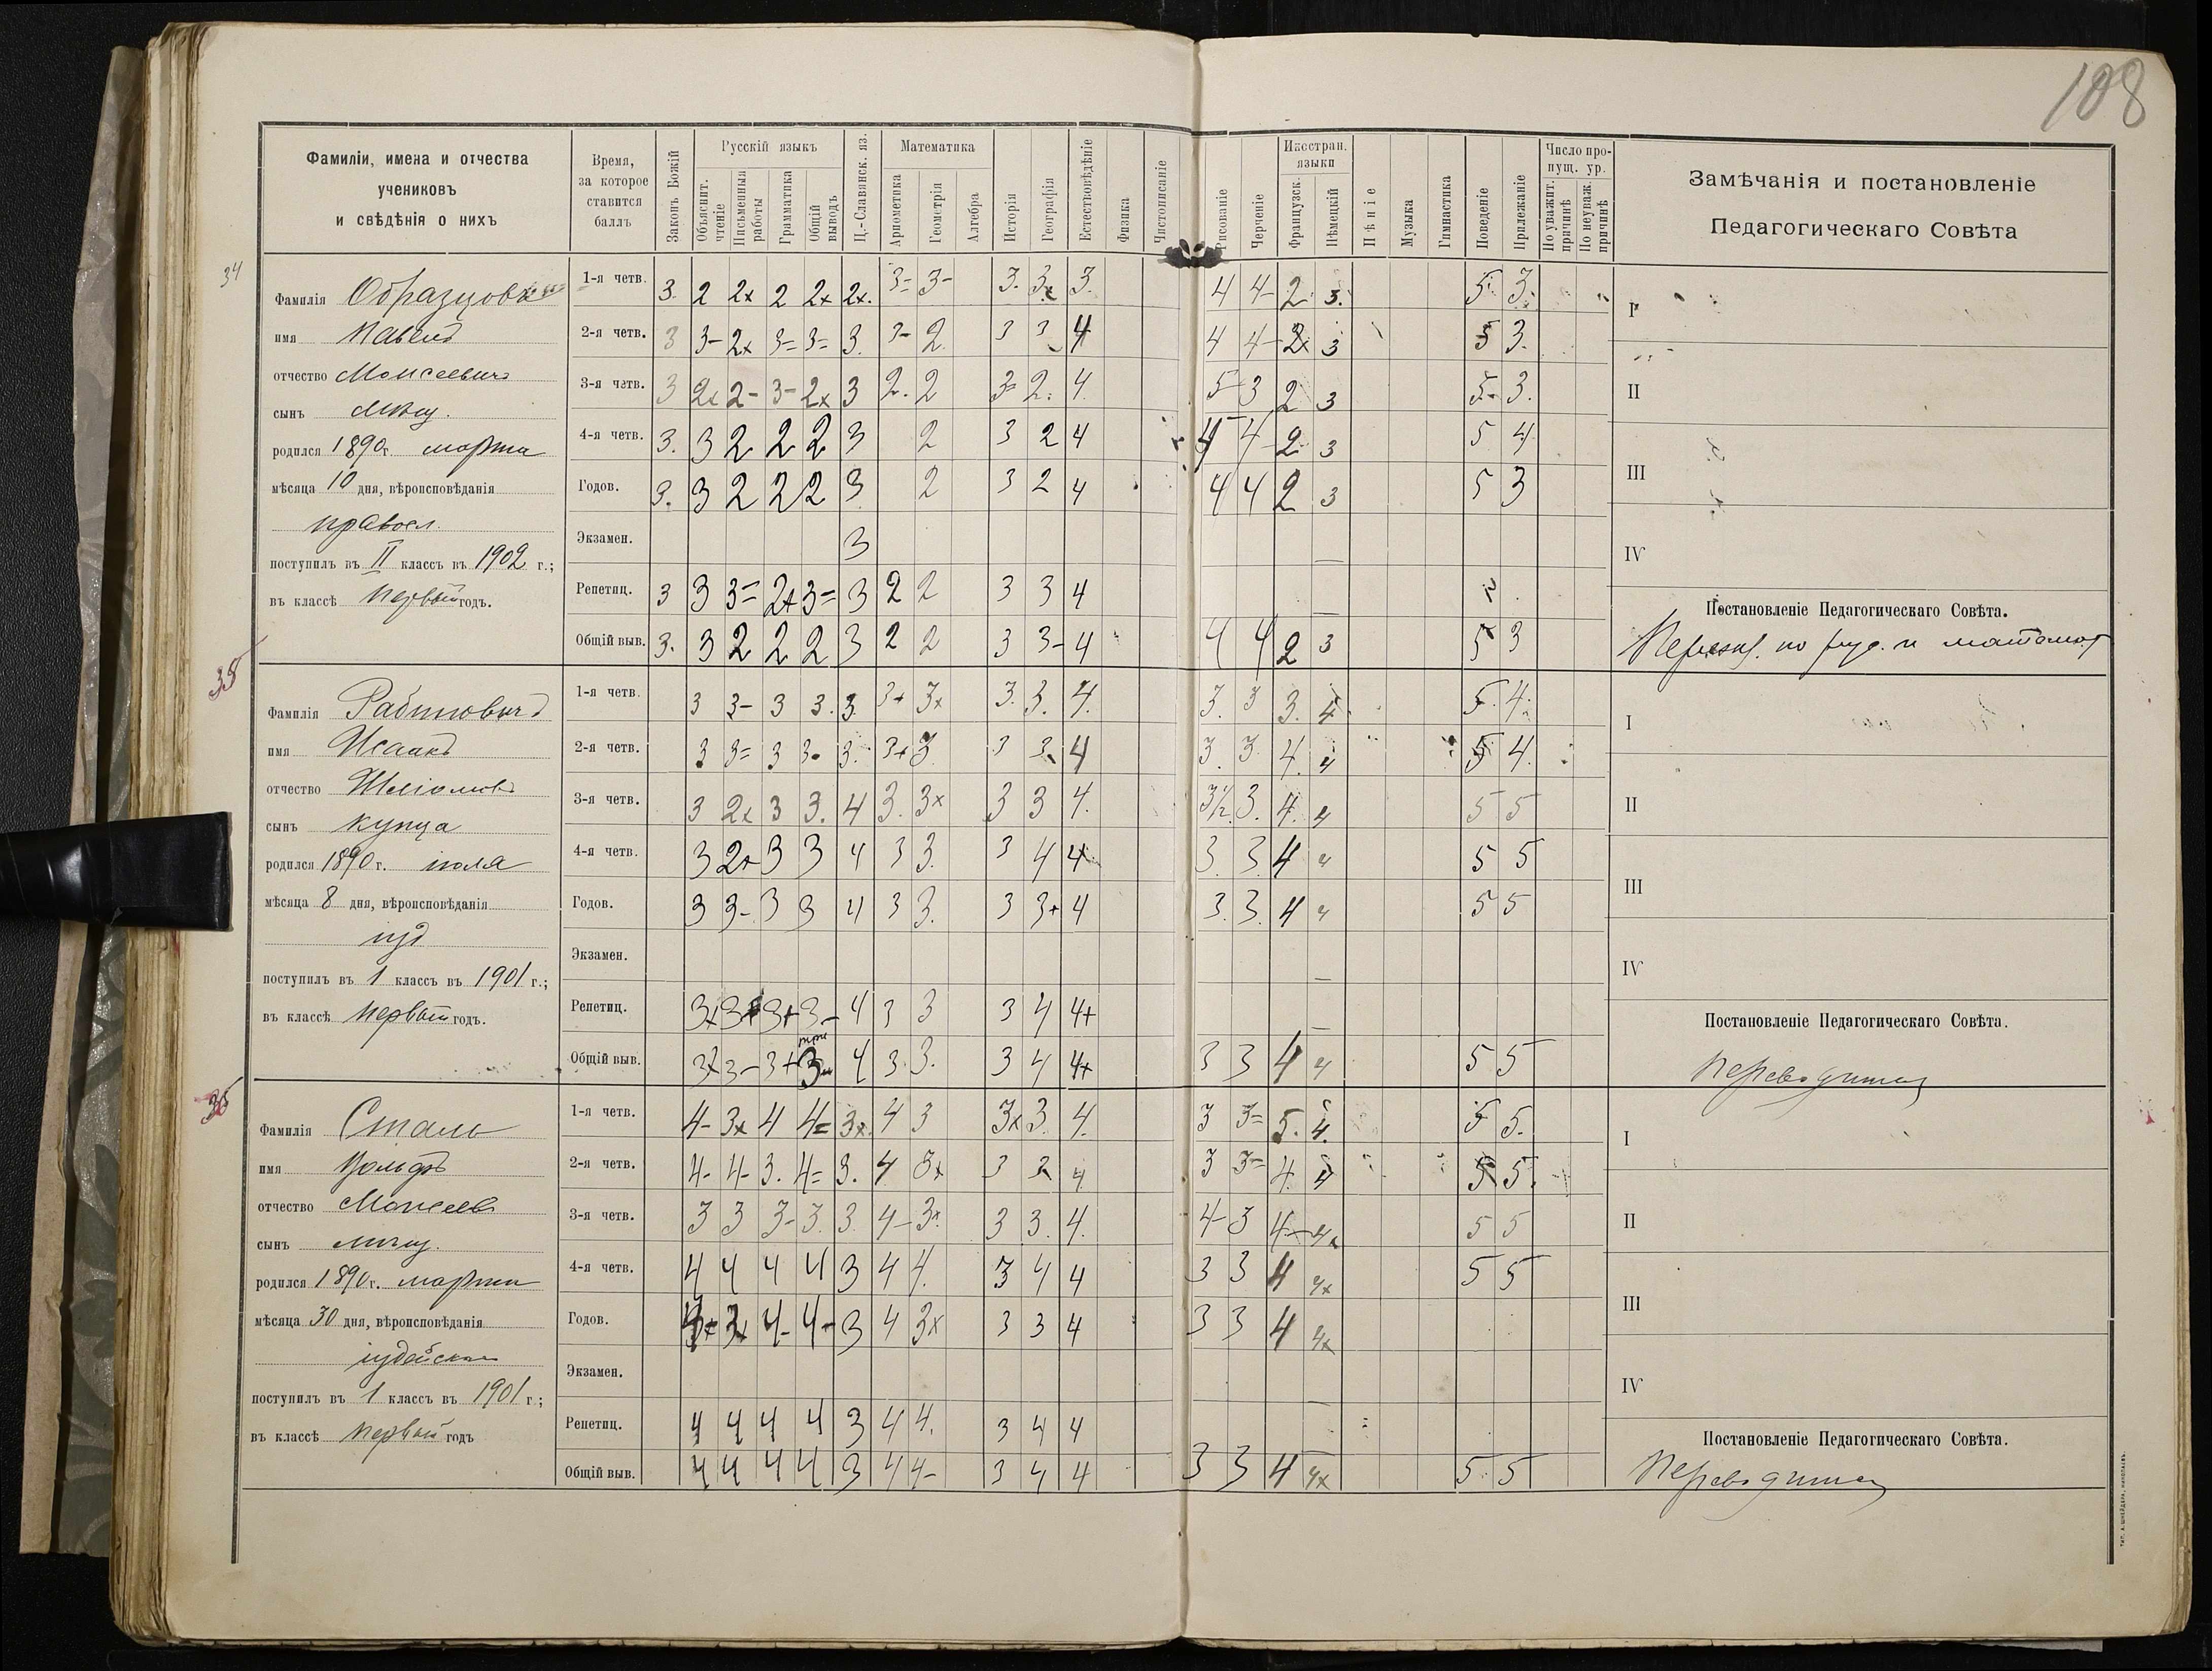 108
Фамиліи, имена и отчества
учениковъ
и свѣдѣнія о нихъ
Время,
за которое
ставится
баллъ
Законъ Божій
Русскій языкъ
Объяснит.
чтеніе
Письменныя
работы
Грамматика
Общій
выводъ
Ц.-Славянск. яз.
Математика
Ариѳметика
Геометрія
Алгебра
Исторія
Географія
Естествовѣдѣніе
Физика
Чистописаніе
Рисованіе
Черченіе
Иностран.
языки
Французск.
Нѣмецкій
Пѣніе
Музыка
Гимнастика
Поведеніе
Прилежаніе
Число про-
пущ. ур.
По уважит.
причинѣ
По неуваж.
причинѣ
Замѣчанія и постановленіе
Педагогическаго Совѣта
34
Фамилія Образцовъ
имя Павелъ
отчество Моисеевичъ
сынъ
родился 1890 г. марта
мѣсяца 10 дня, вѣроисповѣданія
правосл.
поступилъ въ II классъ въ 1902 г.;
въ классѣ первый годъ.
1-я четв. 3. 2 2x 2 2x 2x. 3= 3- 3. 3x 3. 4 4- 2. 3. 5. 3.
2-я четв. 3 3- 2x 3= 3= 3. 3- 2. 3 3 4 4 4- 2x 3 5 3.
3-я четв. 3 2x 2- 3- 2x 3 2. 2 3= 2. 4. 5- 3 2 3 5. 3.
4-я четв. 3. 3 2 2 2 3 2 3 2 4 4 4- 2 3 5 4
Годов. 3. 3 2 2 2 3 2 3 2 4 4 4 2 3 5 3
Экзамен. 3
Репетиц. 3 3 3= 2+ 3= 3 2 2 3 3 4
Общій выв. 3. 3 2 2 2 3 2 2 3 3- 4 4 4 2 3 5 3
I
II
III
IV
Постановленіе Педагогическаго Совѣта.
по рус. и математ.
35
Фамилія Рабиновичъ
имя Исаакъ
отчество Шліомовъ
сынъ купца
родился 1890 г. іюля
мѣсяца 8 дня, вѣроисповѣданія
іуд
поступилъ въ 1 классъ въ 1901 г.;
въ классѣ первый годъ.
1-я четв. 3 3- 3 3. 3. 3+ 3x 3. 3. 4. 3. 3 3. 4. 5. 4.
2-я четв. 3 3= 3 3- 3. 3+ 3 3 3. 4 3. 3. 4. 4 5 4.
3-я четв. 3 2x 3 3. 4 3. 3x 3 3 4. 3½. 3. 4. 4 5 5
4-я четв. 3 2+ 3 3 4 3 3. 3 4 4 3. 3. 4 4 5 5
Годов. 3 3- 3 3 4 3 3. 3 3+ 4 3. 3. 4 4 5 5
Экзамен.
Репетиц. 3x 3+ 3+ 3- 4 3 3 3 4 4+
три
Общій выв. 3x 3- 3+ 3 4 3. 3. 3 4 4+ 3 3 4 4 5 5
I
II
III
IV
Постановленіе Педагогическаго Совѣта.
переводится
36
Фамилія Сталь
имя Вольфъ
отчество Моисеев
сынъ мѣщ.
родился 1890 г. марта
мѣсяца 30 дня, вѣроисповѣданія
іудейскаго
поступилъ въ 1 классъ въ 1901 г.;
въ классѣ первый годъ
1-я четв. 4- 3x 4 4= 3x. 4 3 3x 3. 4. 3 3= 5. 4. 5 5.
2-я четв. 4- 4- 3. 4= 3. 4 3x 3 3 4 3 3= 4. 4 5 5.
3-я четв. 3 3 3- 3. 3. 4- 3x 3 3. 4. 4- 3 4- 4x 5 5
4-я четв. 4 4 4 4 3 4 4. 3 4 4 3 3 4 4x 5 5
Годов. 3x 4- 4- 3 4 3x 3 3 4 3 3 4 4x
Экзамен.
Репетиц. 4 4 4 4 3 4 4. 3 4 4
Общій выв. 4 4 4 4 3 4 4- 3 4 4 3 3 4 4x 5. 5
I
II
III
IV
Постановленіе Педагогическаго Совѣта.
Переводится
ТИП. А. ШНЕЙДЕРА, НИКОЛАЕВЪ.